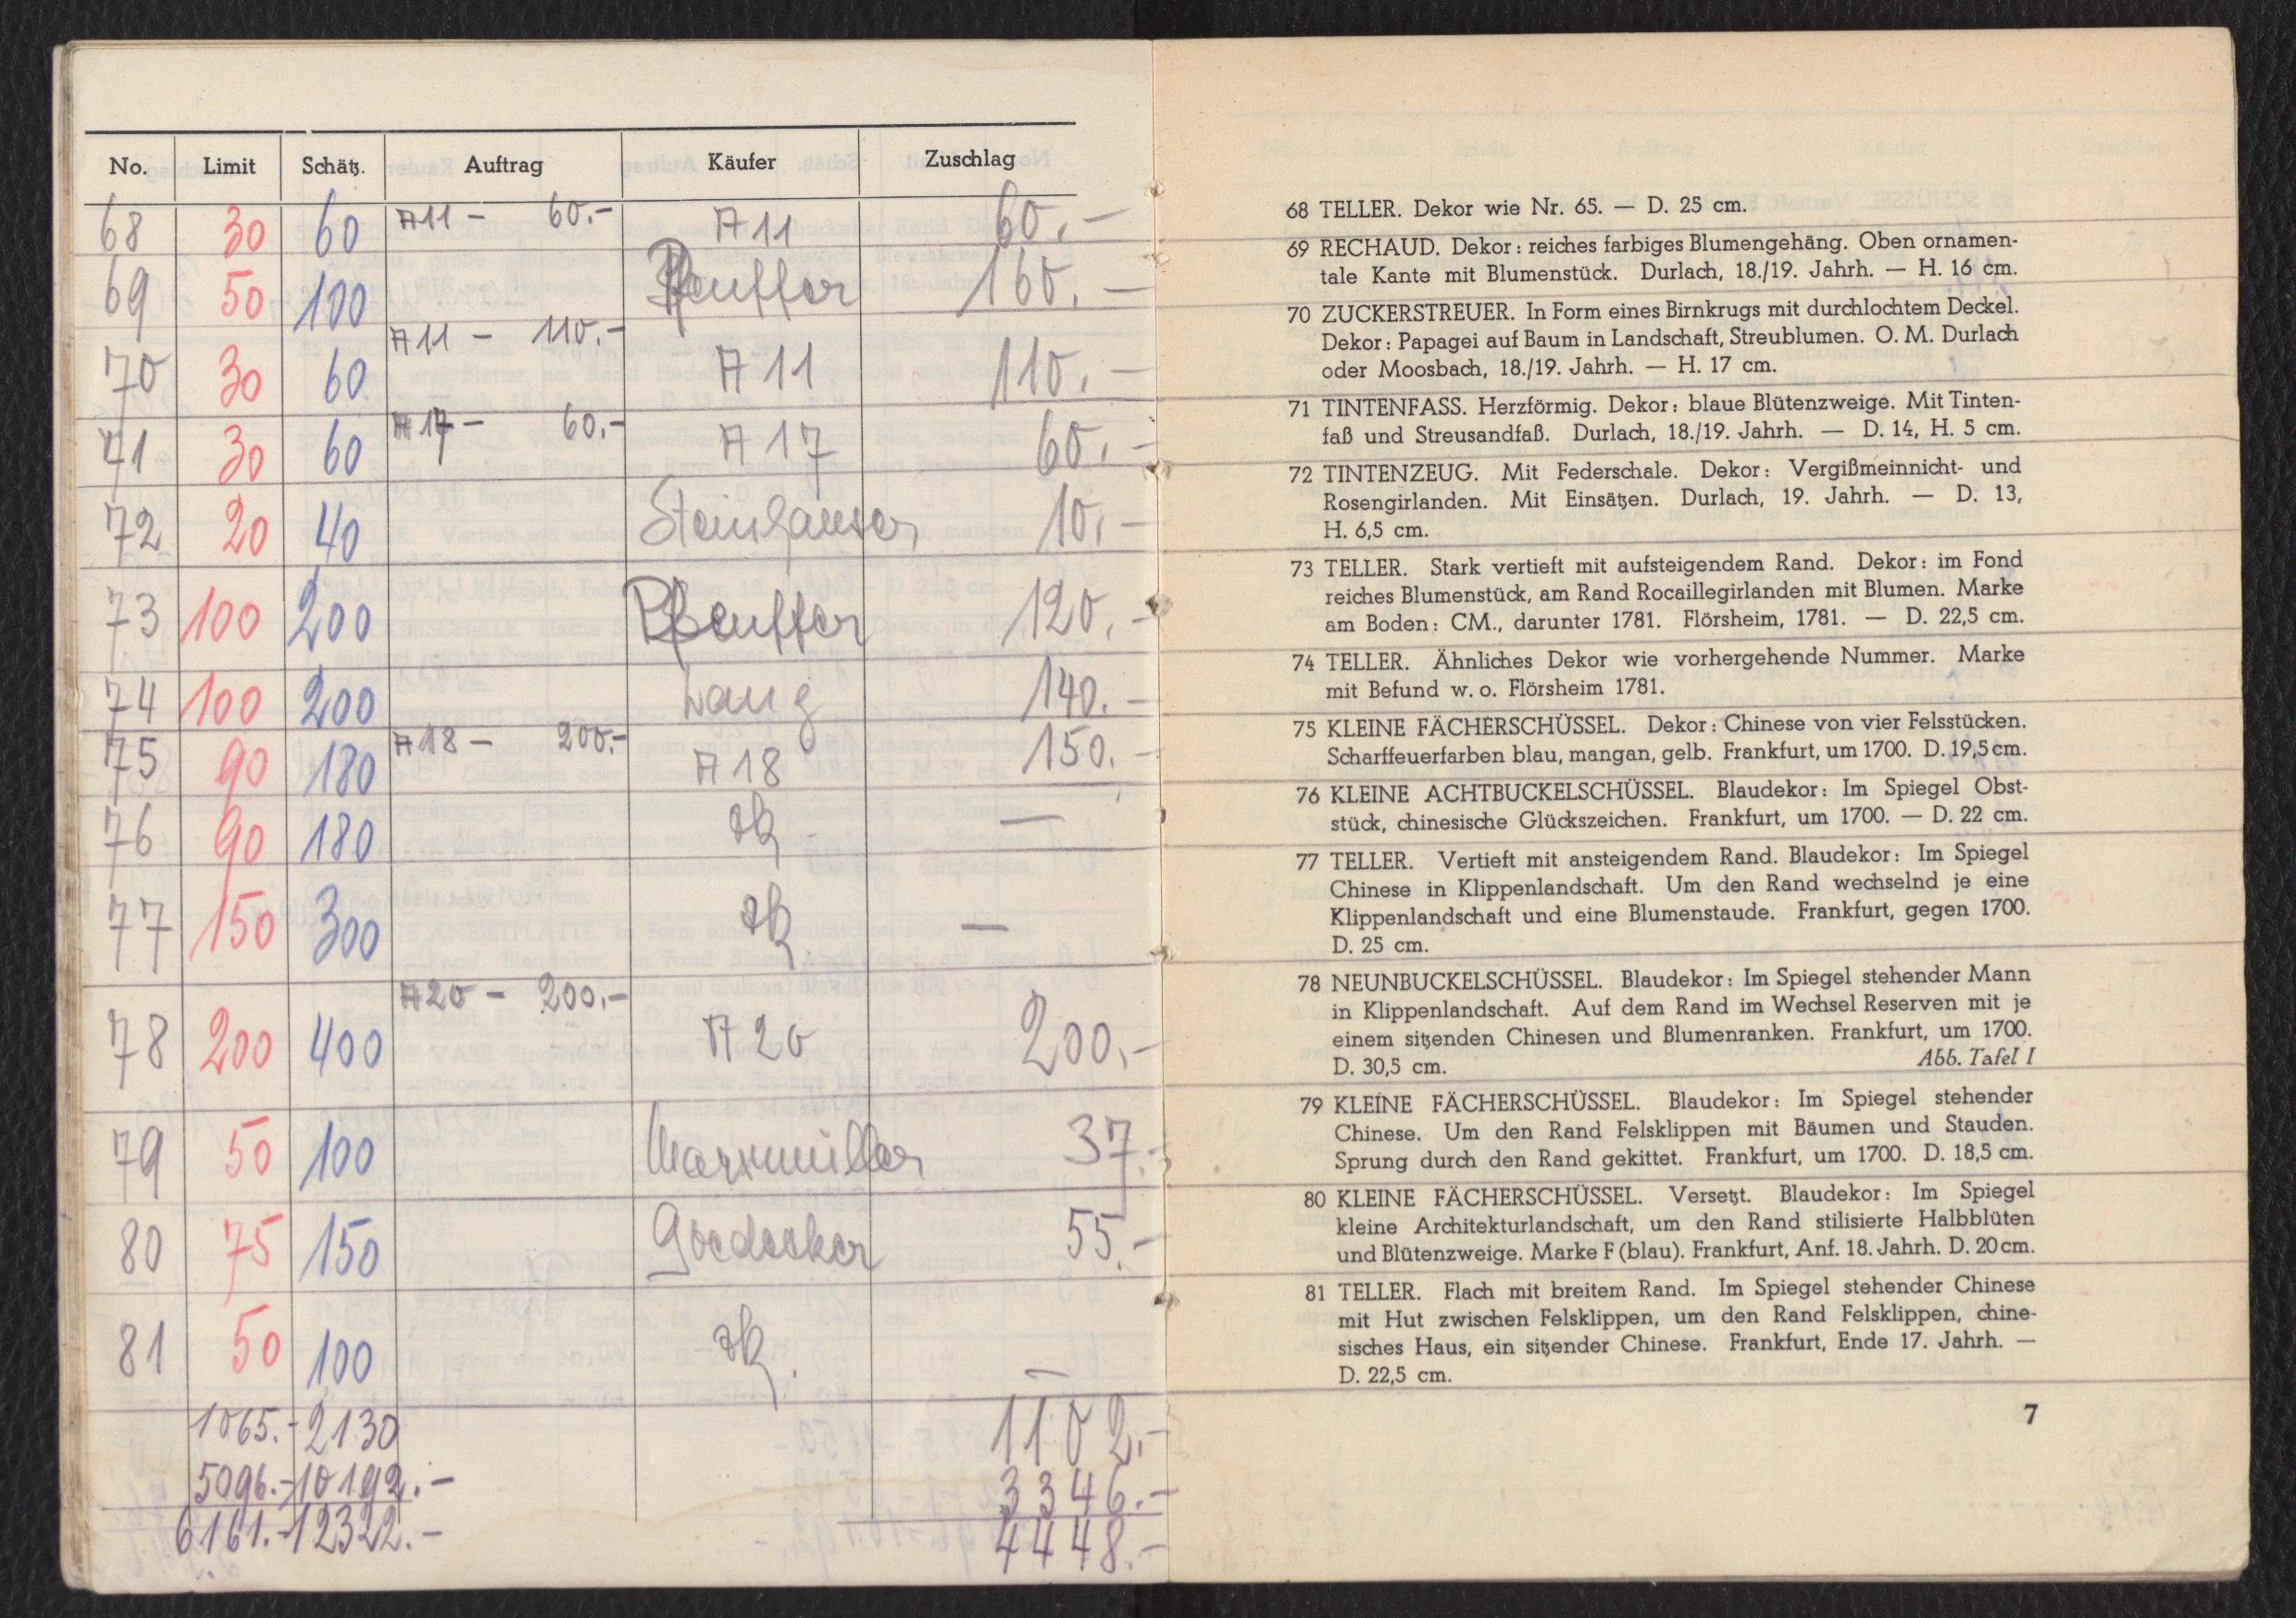 No. Limit Schätz. Auftrag Käufer Zuschlag
68 30 60 A11 – 60.– A11 60.–
69 50 100 Pfeuffer 160.–
70 30 60 A11 – 110.– A11 110.–
71 30 60 A17 – 60.– A17 60.–
72 20 40 Steinhauser 10.–
73 100 200 Pfeuffer 120.–
74 100 200 Lang 140.–
75 90 180 A18 – 200.– A18 150.–
76 90 180 zk. —
77 150 300 zk. —
78 200 400 A20 – 200.– A20 200.–
79 50 100 Marxmüller 37.–
80 75 150 Goedecker 55.–
81 50 100 zk. —
1065.– 2130 1102.–
5096.– 10192.– 3346.–
6161.– 12322.– 4448.–
68 TELLER. Dekor wie Nr. 65. — D. 25 cm.
69 RECHAUD. Dekor: reiches farbiges Blumengehäng. Oben ornamen-
tale Kante mit Blumenstück. Durlach, 18./19. Jahrh. — H. 16 cm.
70 ZUCKERSTREUER. In Form eines Birnkrugs mit durchlochtem Deckel.
Dekor: Papagei auf Baum in Landschaft, Streublumen. O. M. Durlach
oder Moosbach, 18./19. Jahrh. — H. 17 cm.
71 TINTENFASS. Herzförmig. Dekor: blaue Blütenzweige. Mit Tinten-
faß und Streusandfaß. Durlach, 18./19. Jahrh. — D. 14, H. 5 cm.
72 TINTENZEUG. Mit Federschale. Dekor: Vergißmeinnicht- und
Rosengirlanden. Mit Einsätzen. Durlach, 19. Jahrh. — D. 13,
H. 6,5 cm.
73 TELLER. Stark vertieft mit aufsteigendem Rand. Dekor: im Fond
reiches Blumenstück, am Rand Rocaillegirlanden mit Blumen. Marke
am Boden: CM., darunter 1781. Flörsheim, 1781. — D. 22,5 cm.
74 TELLER. Ähnliches Dekor wie vorhergehende Nummer. Marke
mit Befund w. o. Flörsheim 1781.
75 KLEINE FÄCHERSCHÜSSEL. Dekor: Chinese von vier Felsstücken.
Scharffeuerfarben blau, mangan, gelb. Frankfurt, um 1700. D. 19,5 cm.
76 KLEINE ACHTBUCKELSCHÜSSEL. Blaudekor: Im Spiegel Obst-
stück, chinesische Glückszeichen. Frankfurt, um 1700. — D. 22 cm.
77 TELLER. Vertieft mit ansteigendem Rand. Blaudekor: Im Spiegel
Chinese in Klippenlandschaft. Um den Rand wechselnd je eine
Klippenlandschaft und eine Blumenstaude. Frankfurt, gegen 1700.
D. 25 cm.
78 NEUNBUCKELSCHÜSSEL. Blaudekor: Im Spiegel stehender Mann
in Klippenlandschaft. Auf dem Rand im Wechsel Reserven mit je
einem sitzenden Chinesen und Blumenranken. Frankfurt, um 1700.
D. 30,5 cm. Abb. Tafel I
79 KLEINE FÄCHERSCHÜSSEL. Blaudekor: Im Spiegel stehender
Chinese. Um den Rand Felsklippen mit Bäumen und Stauden.
Sprung durch den Rand gekittet. Frankfurt, um 1700. D. 18,5 cm.
80 KLEINE FÄCHERSCHÜSSEL. Versetzt. Blaudekor: Im Spiegel
kleine Architekturlandschaft, um den Rand stilisierte Halbblüten
und Blütenzweige. Marke F (blau). Frankfurt, Anf. 18. Jahrh. D. 20 cm.
81 TELLER. Flach mit breitem Rand. Im Spiegel stehender Chinese
mit Hut zwischen Felsklippen, um den Rand Felsklippen, chine-
sisches Haus, ein sitzender Chinese. Frankfurt, Ende 17. Jahrh. —
D. 22,5 cm.
7